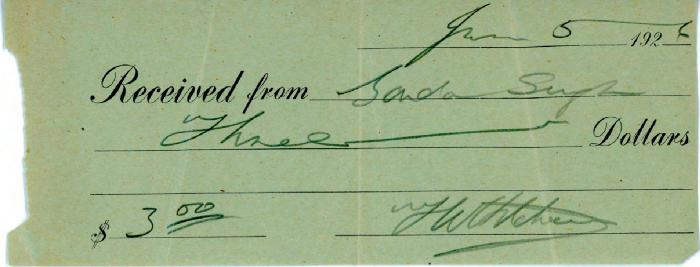 June 5 1926
Received from Sunda Singh
Three Dollars
$ 3 00